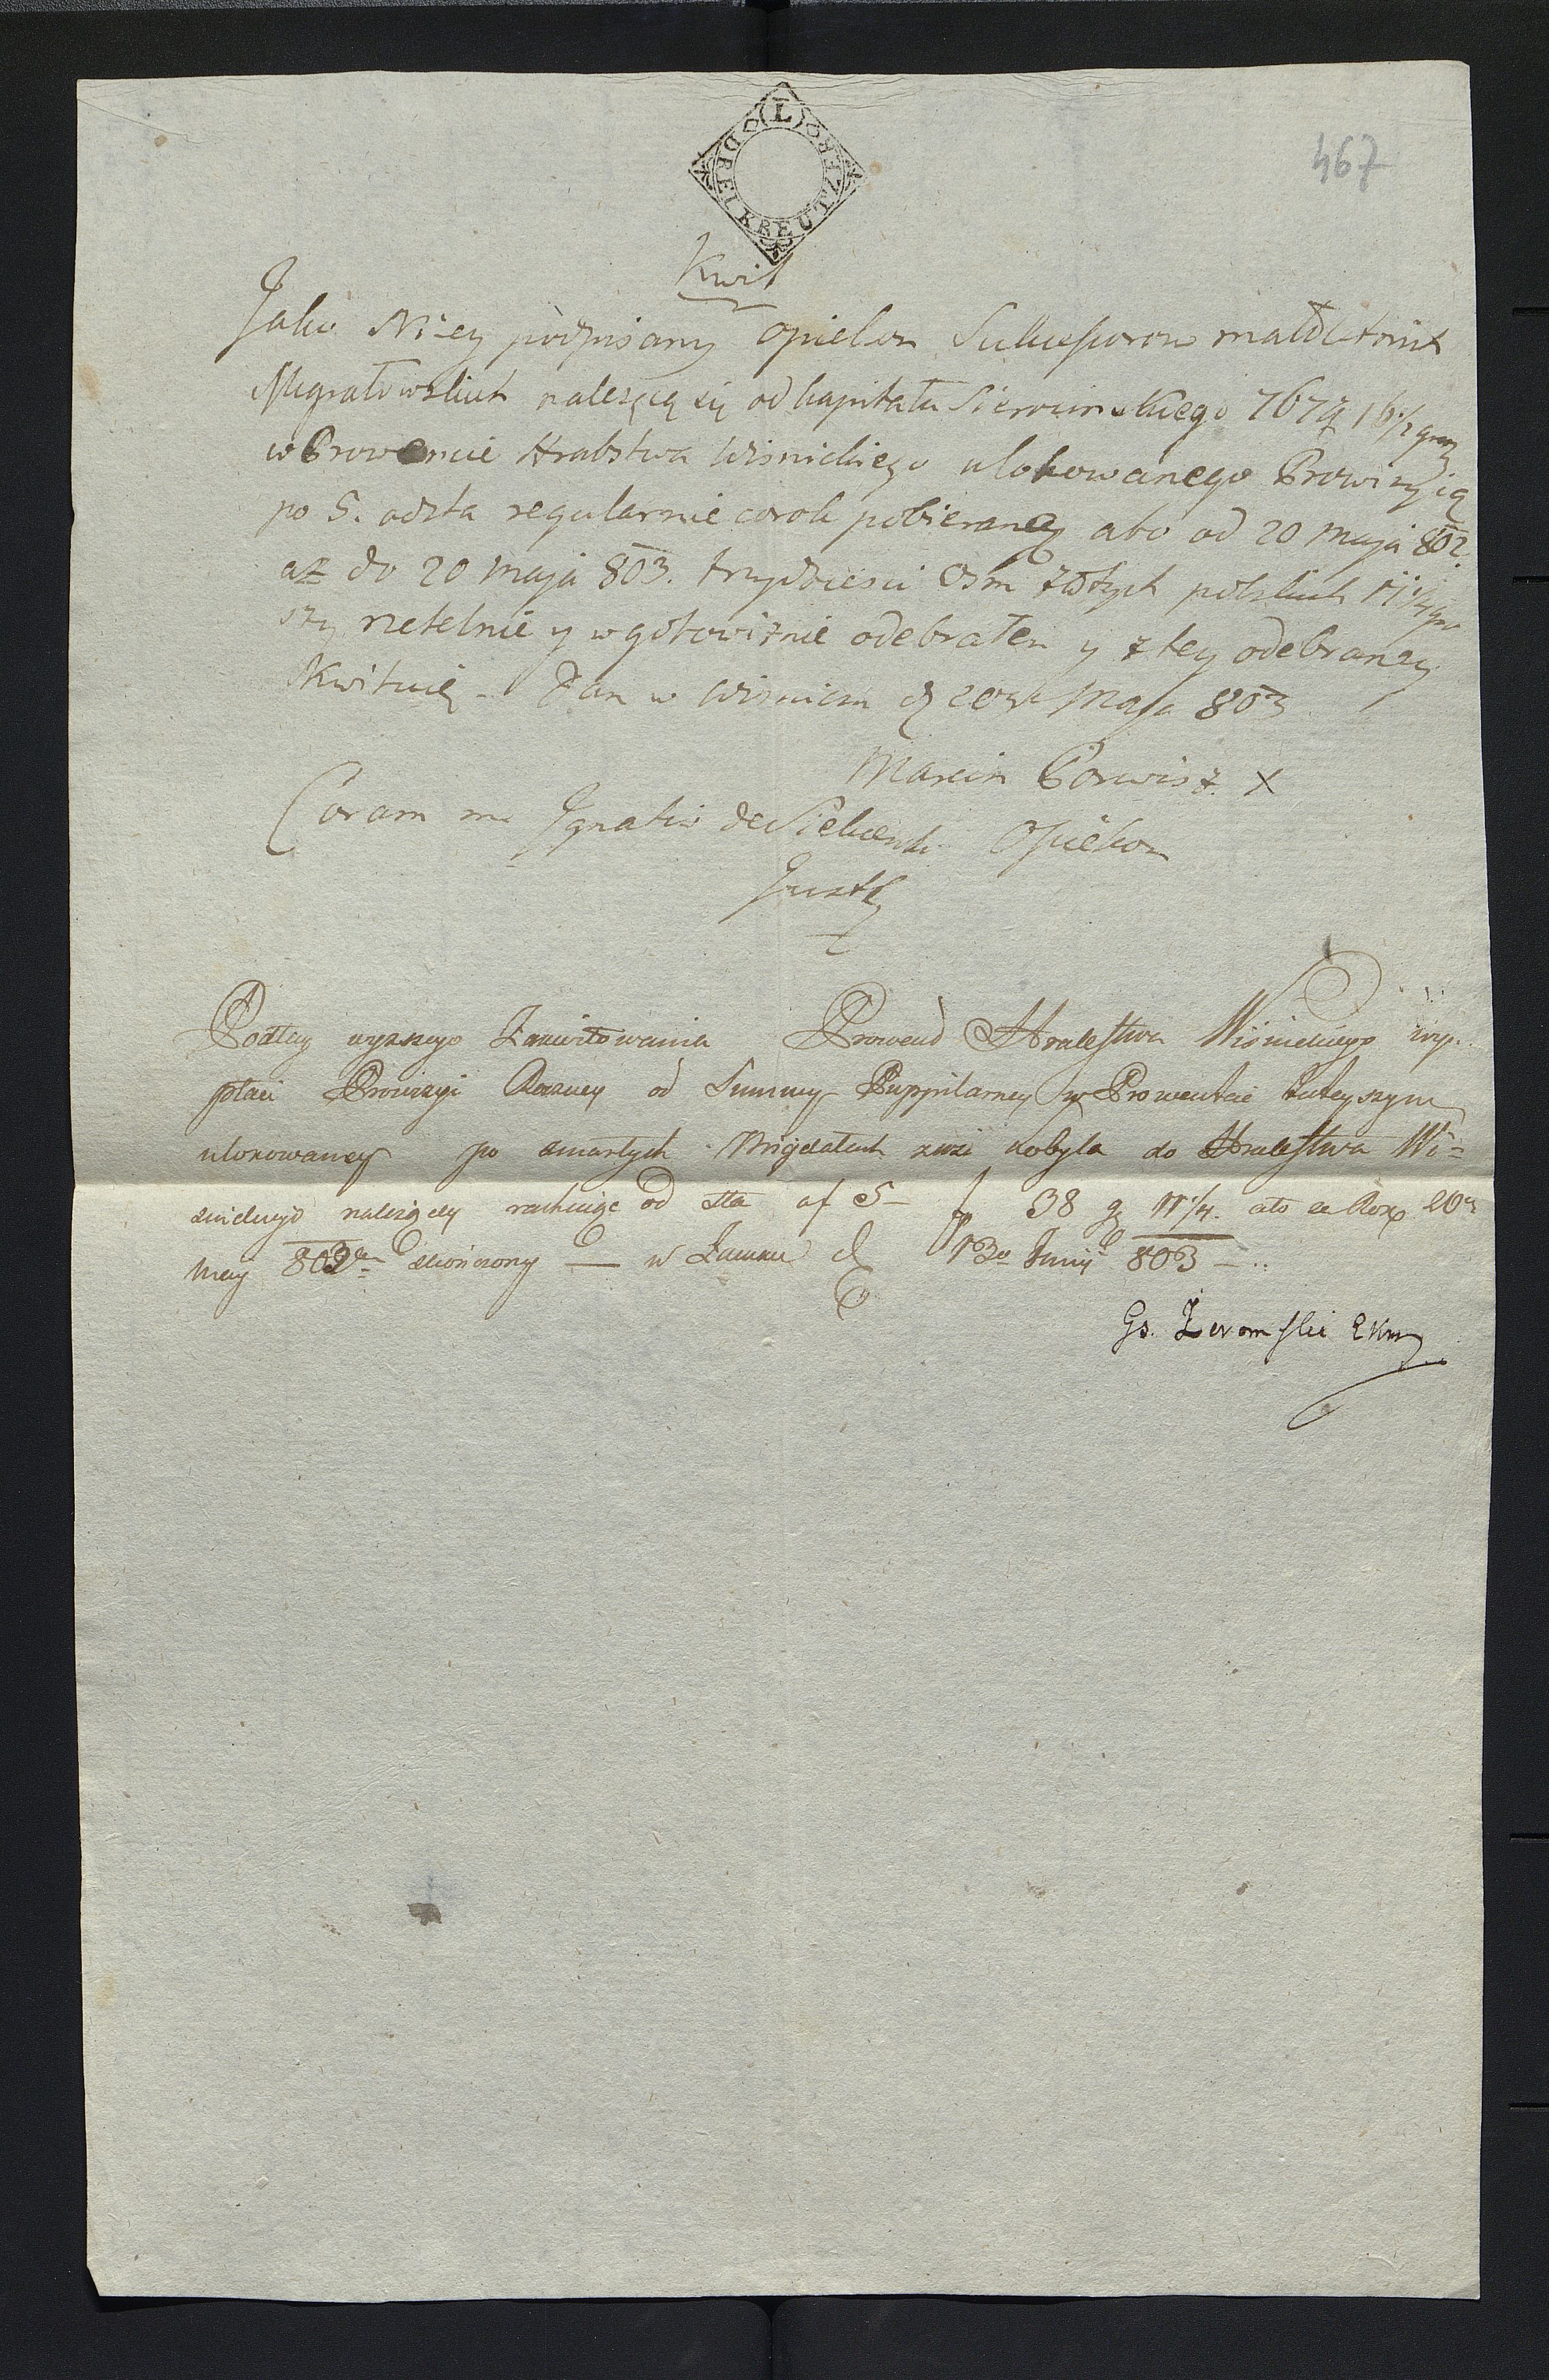 (L)
DREI KREUTZER
467
Kwit
Jako Niżey podpisany opiekon Sukcessorow małoletnich
Migratowskich należącą się od kapitału Sierocinskiego 767 16 1/2 gr
w Prowencie Hrabstwa Wisnickiego ulokowanego Prowizyią
po 5. odsta regularnie corok pobieraney abo od 20 maja 802.
aż do 20 maja 803. trzydziesci Osm złotych polskich 11 1/4 gro
szy rzetelnie y w gotowiznie odebrałem y z tey odebraney
Kwituię - Dan w Wisniczu d 20 Maja 803
Marcin Porwisz. X
Coram me Ignatio de Opiekon
Justz
Podług wyzszego Zakwitowania Prowent Hrabstwa Wisnickiego wy-
płaci Prowizyi Roczney od Summy Puppilarney w Prowentcie tuteyszym
ulokowaney po zmarłych Migdałach Kobyla do Hrabstwa Wi=
snickiego należącey rachuiąc od sta af 5 - 38 g 11 1/4. ato za Rok 20
May 803 skończony — w Zamku d 13 Junii 803 -..
Żeromski